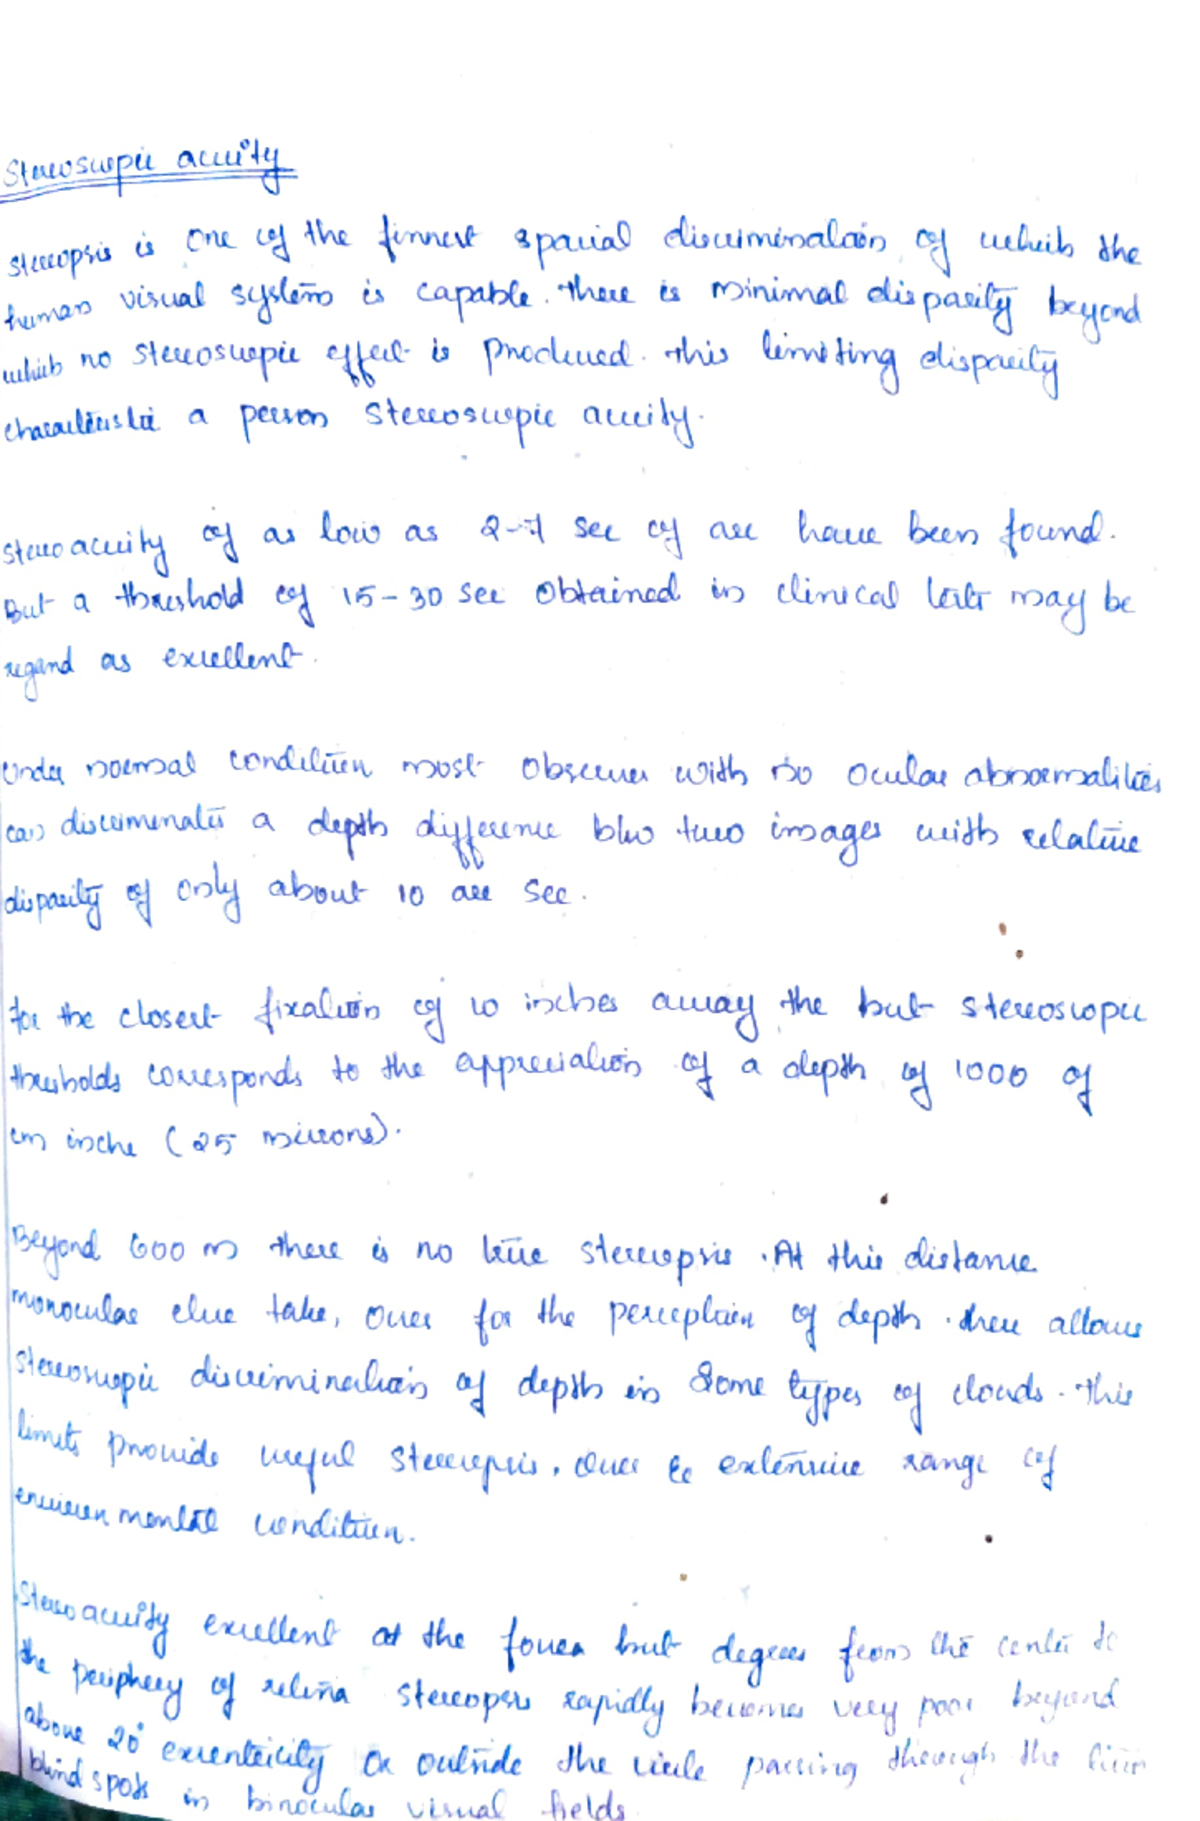 Stereoscopic acuity
Stereopsis is one of the finnest spacial discrimination of which the
human visual system is capable. There is minimal disparity beyond
which no stereoscopic effect is produced. This limiting disparity
characteristic a person stereoscopic acuity.
Stereoacuity of as low as 2-7 sec of arc have been found.
But a threshold of 15-30 sec obtained in clinical tests may be
regard as excellent.
Under normal condition most observer with no ocular abnormalities
can discriminate a depth difference b/w two images with relative
disparity of only about 10 arc sec.
For the closest fixation of 10 inches away the but stereoscopic
thresholds corresponds to the appreciation of a depth of 1000 of
an inche (25 microns).
Beyond 600 m there is no true stereopsis. At this distance
monocular clue take, over for the perception of depth. allows
stereoscopic discrimination of depth in some types of clouds. This
limits provide useful stereopsis, over extensive range of
environmental condition.
Stereoacuity excellent at the fovea but degrees from the center to
the periphery of retina stereopsis rapidly becomes very poor beyond
above 20° excentricity or outside the circle passing through the
blind spots in binocular visual fields